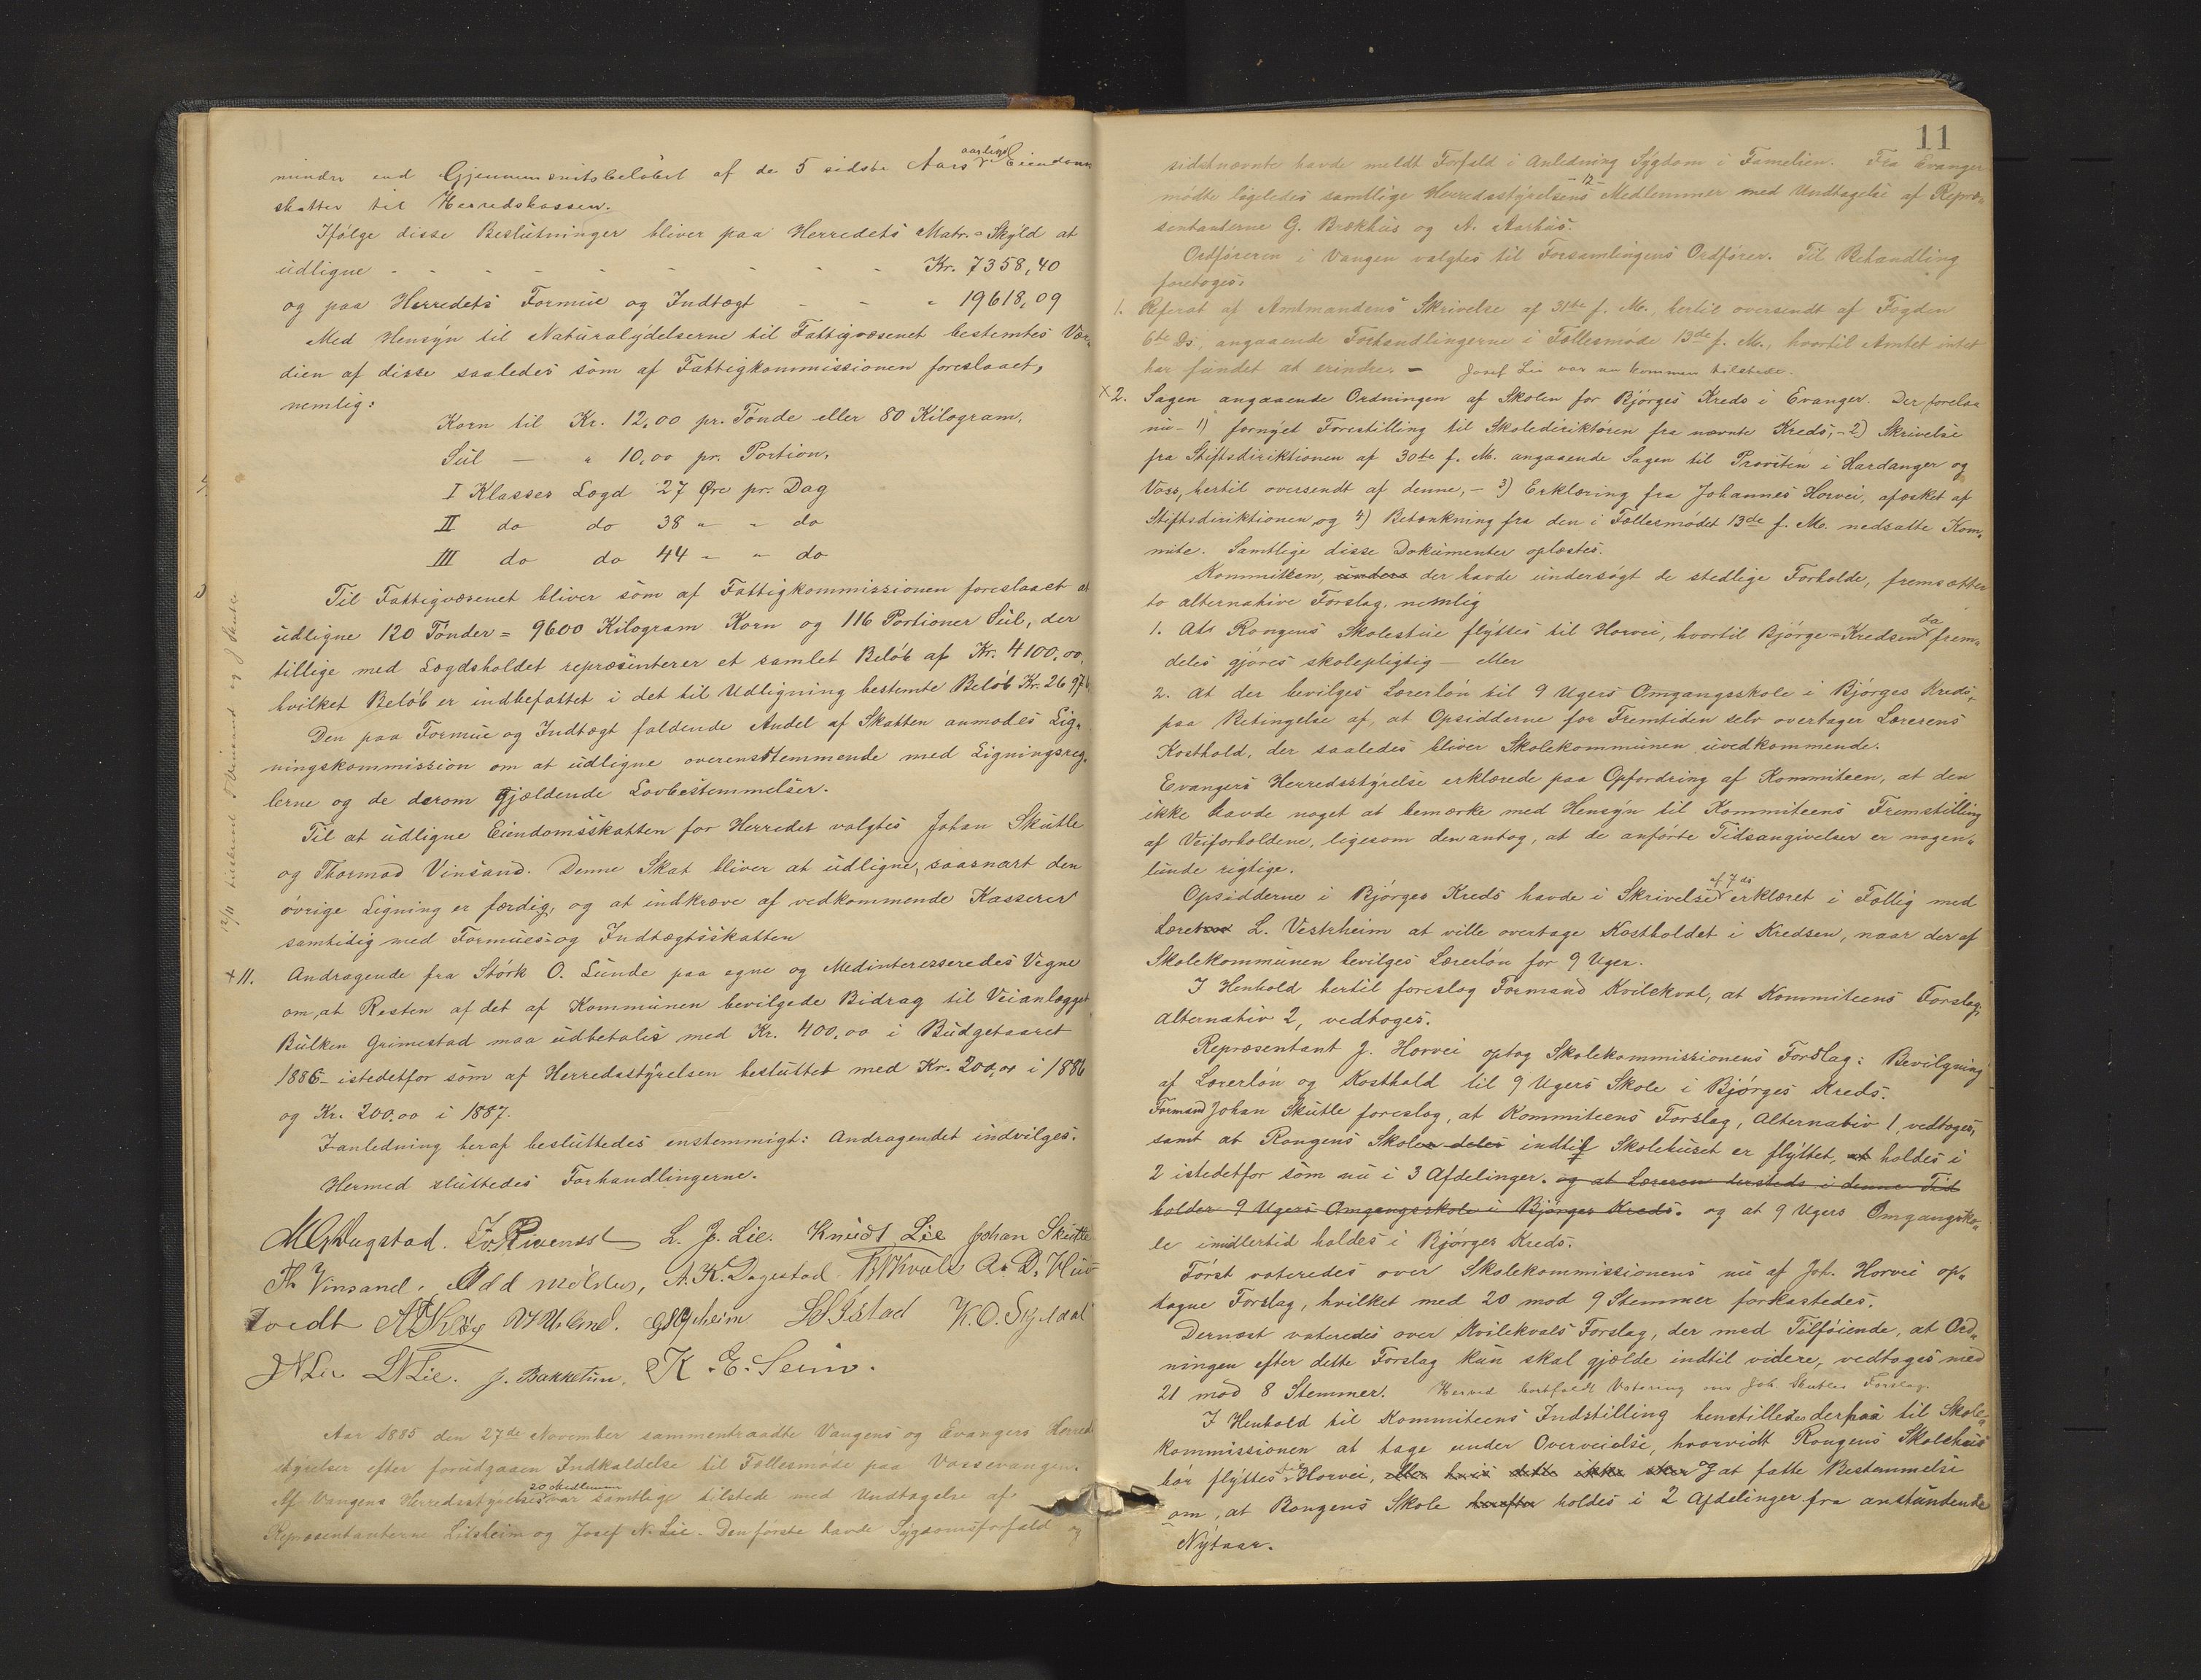 mindre end Gjennemsnitsbeløbet af de 5 sidste Aars aarlige Eiendoms
skatter til Herredskassen.
Ifølge disse Beslutninger bliver paa Herredets Matr.-Skyld at
udligne - - - - - - - - Kr. 7358,40
og paa Herredets Formue og Indtægt - - " 19618,09
Med Hensyn til Naturalydelserne til Fattigvæsenet bestemtes Vær-
dien af disse saaledes som af Fattigkommissionen foreslaaet,
nemlig:
Korn til Kr. 12,00 pr. Tønde eller 80 Kilogram.
Sul — " 10,00 pr. Portion,
I Klasses Lægd 27 Øre pr. Dag
II do do 38 " " do
III do do 44 " " do
Til Fattigvæsenet bliver som af Fattigkommissionen foreslaaet at
udligne 120 Tønder = 9600 Kilogram Korn og 116 Portioner Sul, der
tillige med Lægdsholdet repræsenterer et samlet Beløb af Kr. 4100,00,
hvilket Beløb er indbefattet i det til Udligning bestemte Beløb Kr. 2697
Den paa Formue og Indtægt faldende Andel af Skatten anmodes Lig-
ningskommission om at udligne overensstemmende med Ligningsreg-
lerne og de derom gjældende Lovbestemmelser.
Til at udligne Eiendomsskatten for Herredet valgtes Johan Skutle
og Thormod Vinsand. Denne Skat bliver at udligne, saasnart den
øvrige Ligning er færdig, og at indkræve af vedkommende Kasserer
samtidig med Formues- og Indtægtsskatten
2/11 tilstand Vinsand og J Skutle
x 11. Andragende fra Størk O. Lunde paa egne og Medinteresseredes Vegne
om, at Resten af det af Kommunen bevilgede Bidrag til Veianlægget
Bulken Grimestad maa udbetales med Kr. 400,00 i Budgetaaret
1886 istedetfor som af Herredsstyrelsen besluttet med Kr. 200,00 i 1886
og Kr. 200,00 i 1887.
I anledning heraf besluttedes enstemmigt: Andragendet indvilges.
Hermed sluttedes Forhandlingerne.
L. J. Lie. Knudt Lie Johan Skutle
Th Vinsand, Odd Mølster, A. K. Dagestad
K. O. Skjeldal
N Lie L N Lie. J. Bakketun. K. E. Seim.
Aar 1885 den 27de November sammentraadte Vangens og Evangers Herreds
styrelser efter forudgaaen Indkaldelse til Fællesmøde paa Vossevangen.
Af Vangens Herredsstyrelses 20 Medlemmer var samtlige tilstede med Undtagelse af
Repræsentanterne Lilsheim og Josef N. Lie. Den første havde Sygdomsforfald og
11
sidstnævnte havde meldt Forfald i Anledning Sygdom i Familien. Fra Evanger
mødte ligeledes samtlige Herredsstyrelsens -12- Medlemmer med Undtagelse af Repræ-
sentanterne G. Brækhus og A. Aarhus.
Ordføreren i Vangen valgtes til Forsamlingens Ordfører. Til Behandling
foretoges:
1. Referat af Amtmandens Skrivelse af 31te f. M., hertil oversendt af Fogden
6te ds., angaaende Forhandlingerne i Fællesmøde 13de f. M., hvortil Amtet intet
har fundet at erindre. — Josef Lie var nu kommen tilstede.
x 2. Sagen angaaende Ordningen af Skolen for Bjørges Kreds i Evanger. Der forelaa
nu - 1) fornyet Forestilling til Skoledirektøren fra nævnte Kreds, - 2) Skrivelse
fra Stiftsdirektionen af 30te f. M. angaaende Sagen til Provsten i Hardanger og
Voss, hertil oversendt af denne, - 3) Erklæring fra Johannes Horvei, afæsket af
Stiftsdirektionen, og 4) Betænkning fra den i Fællesmødet 13de f. M. nedsatte Kom-
mite. Samtlige disse Dokumenter oplæstes.
Kommiteen, unders der havde undersøgt de stedlige Forholde, fremsætter
to alternative Forslag, nemlig
1. At Rongens Skolestue flyttes til Horvei, hvortil Bjørge-Kredsen da frem-
deles gjøres skolepligtig — eller
2. At der bevilges Lærerløn til 9 Ugers Omgangsskole i Bjørges Kreds,
paa Betingelse af, at Opsidderne for Fremtiden selv overtager Lærerens
Kosthold, der saaledes bliver Skolekommunen uvedkommende.
Evangers Herredsstyrelse erklærede paa Opfordring af Kommiteen, at den
ikke havde noget at bemærke med Hensyn til Kommiteens Fremstilling
af Veiforholdene, ligesom den antog, at de anførte Tidsangivelser er nogen-
lunde rigtige.
Opsidderne i Bjørges Kreds havde i Skrivelse af 7 ds erklæret i Fællig med
Lærer L. Vestrheim at ville overtage Kostholdet i Kredsen, naar der af
Skolekommunen bevilges Lærerløn for 9 Uger.
I Henhold hertil foreslog Formand Kvilekval, at Kommiteens Forslag,
Alternativ 2, vedtoges.
Repræsentant J. Horvei optog Skolekommissionens Forslag: Bevilgning
af Lærerløn og Kosthold til 9 Ugers Skole i Bjørges Kreds.
Formand Johan Skutle foreslog, at Kommiteens Forslag, Alternativ 1, vedtoges,
samt at Rongens Skole deles indtil Skolehuset er flyttet, at holdes i
2 istedetfor som nu i 3 Afdelinger. og at Læreren dersteds i denne Tid
holder 9 Ugers Omgangsskole i Bjørges Kreds. og at 9 Ugers Omgangsko-
le imidlertid holdes i Bjørges Kreds.
Først voteredes over Skolekommissionens nu af Joh. Horvei op-
tagne Forslag, hvilket med 20 mod 9 Stemmer forkastedes.
Dernæst voteredes over Kvilekvals Forslag, der med Tilføiende, at Ord-
ningen efter dette Forslag kun skal gjælde indtil videre, vedtoges med
21 mod 8 Stemmer. Herved bortfaldt Votering over Joh. Skutles Forslag.
I Henhold til Kommiteens Indstilling henstilledes derpaa til Skole-
kommissionen at tage under Overveielse, hvorvidt Rongens Skolehus
bør flyttes til Horvei, eller hvis dette ikke sker og at fatte Bestemmelse
om, at Rongens Skole herefter holdes i 2 Afdelinger fra anstundende
Nytaar.